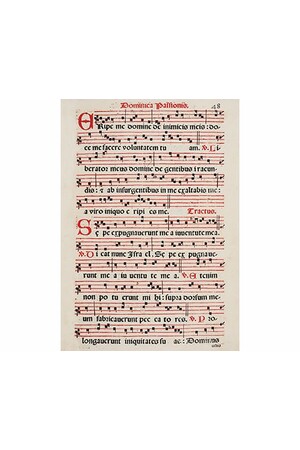 Dominica Passionis. 48
ERipe me domine de inimicis meis: do
ce me facere voluntatem tu am. ℣. Li
berator meus domine de gentibus iracun
dis: ab insurgentibus in me exaltabis me:
a viro iniquo e ripi es me. Tractus.
SE pe expugnaverunt me a iuventute mea.
℣. Di cat nunc Israel. Se pe expugnave
runt me a iu ventu te me a. ℣. Etenim
non po tu erunt mi hi: supra dorsum me
um fabricaverunt pec ca to res. ℣. Pro
longaverunt iniquitates su as: Dominus